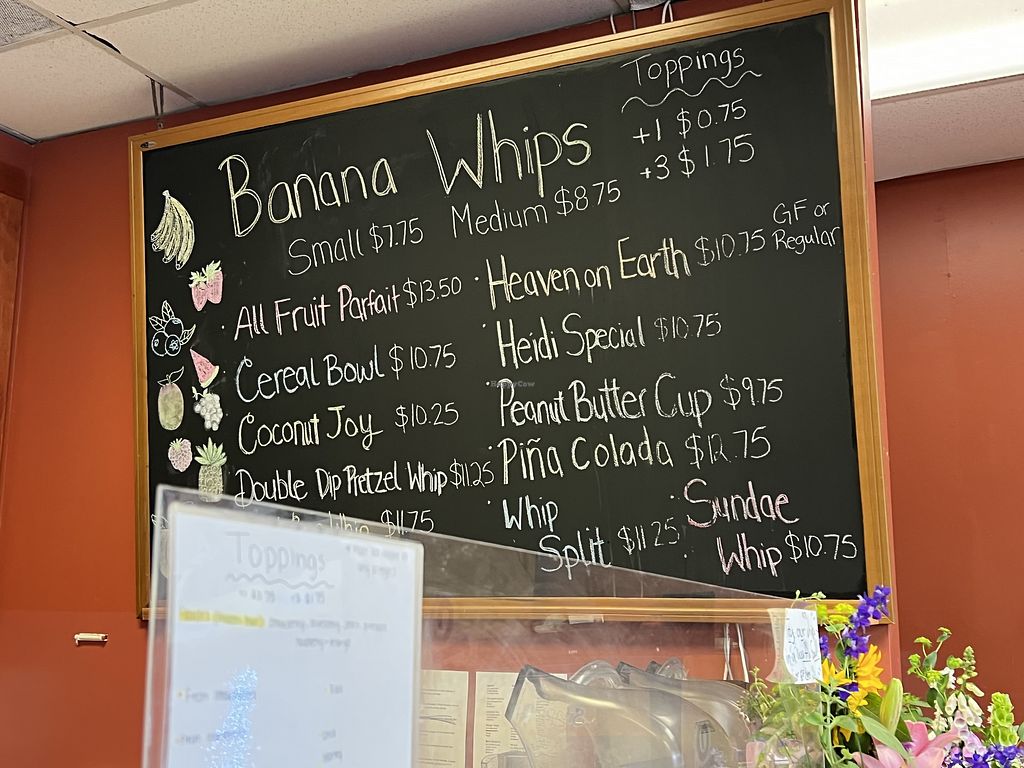 Toppings
+1 $0.75
+3 $1.75
Banana Whips
Small $7.75 Medium $8.75
All Fruit Parfait $13.50
Cereal Bowl $10.75
Coconut Joy $10.25
Double Dip Pretzel Whip $11.25
Whip $11.75
Heaven on Earth $10.75 GF or
Regular
Heidi Special $10.75
Peanut Butter Cup $9.75
Piña Colada $12.75
Whip
Split $11.25
Sundae
Whip $10.75
HappyCow
Toppings